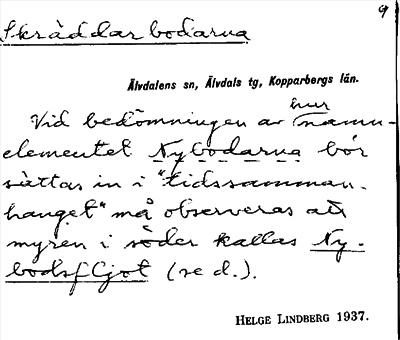 9
Skräddarbodarna
Älvdalens sn, Älvdals tg, Kopparbergs län.
hur
Vid bedömningen av namn-
elementet Nybodarna bör
sättas in i "tidssamman-
hanget" må observeras att
myren i söder kallas Ny-
bodsfljot (se d.).
HELGE LINDBERG 1937.